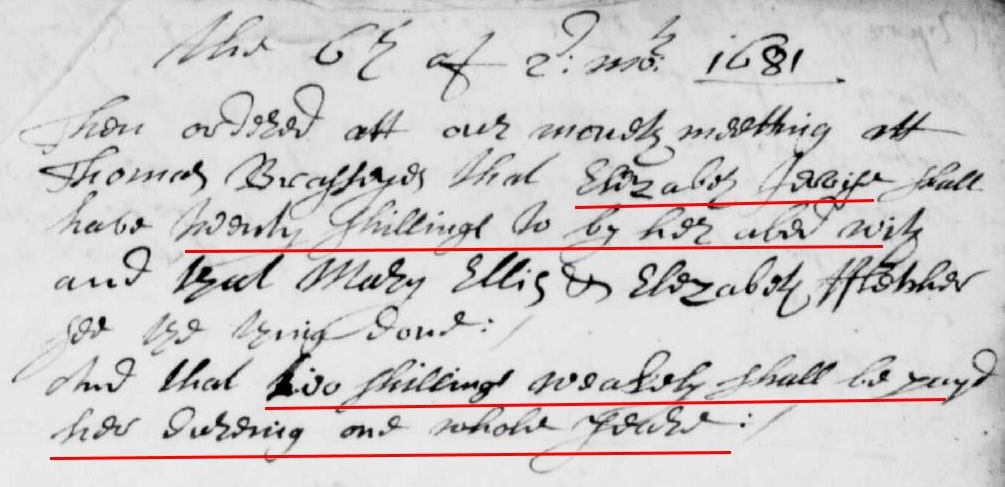 The 6th of 2d: mo: 1681
Then ordered att our moneth meetting att
Thomas Brasseyes that Elezabeth Jervise shall
have twenty shillings to by her abed with
and that Mary Ellis & Elezabeth ffletcher
see the thing done:
And that two shillings weakely shall be payd
her dureing one whole yeare: